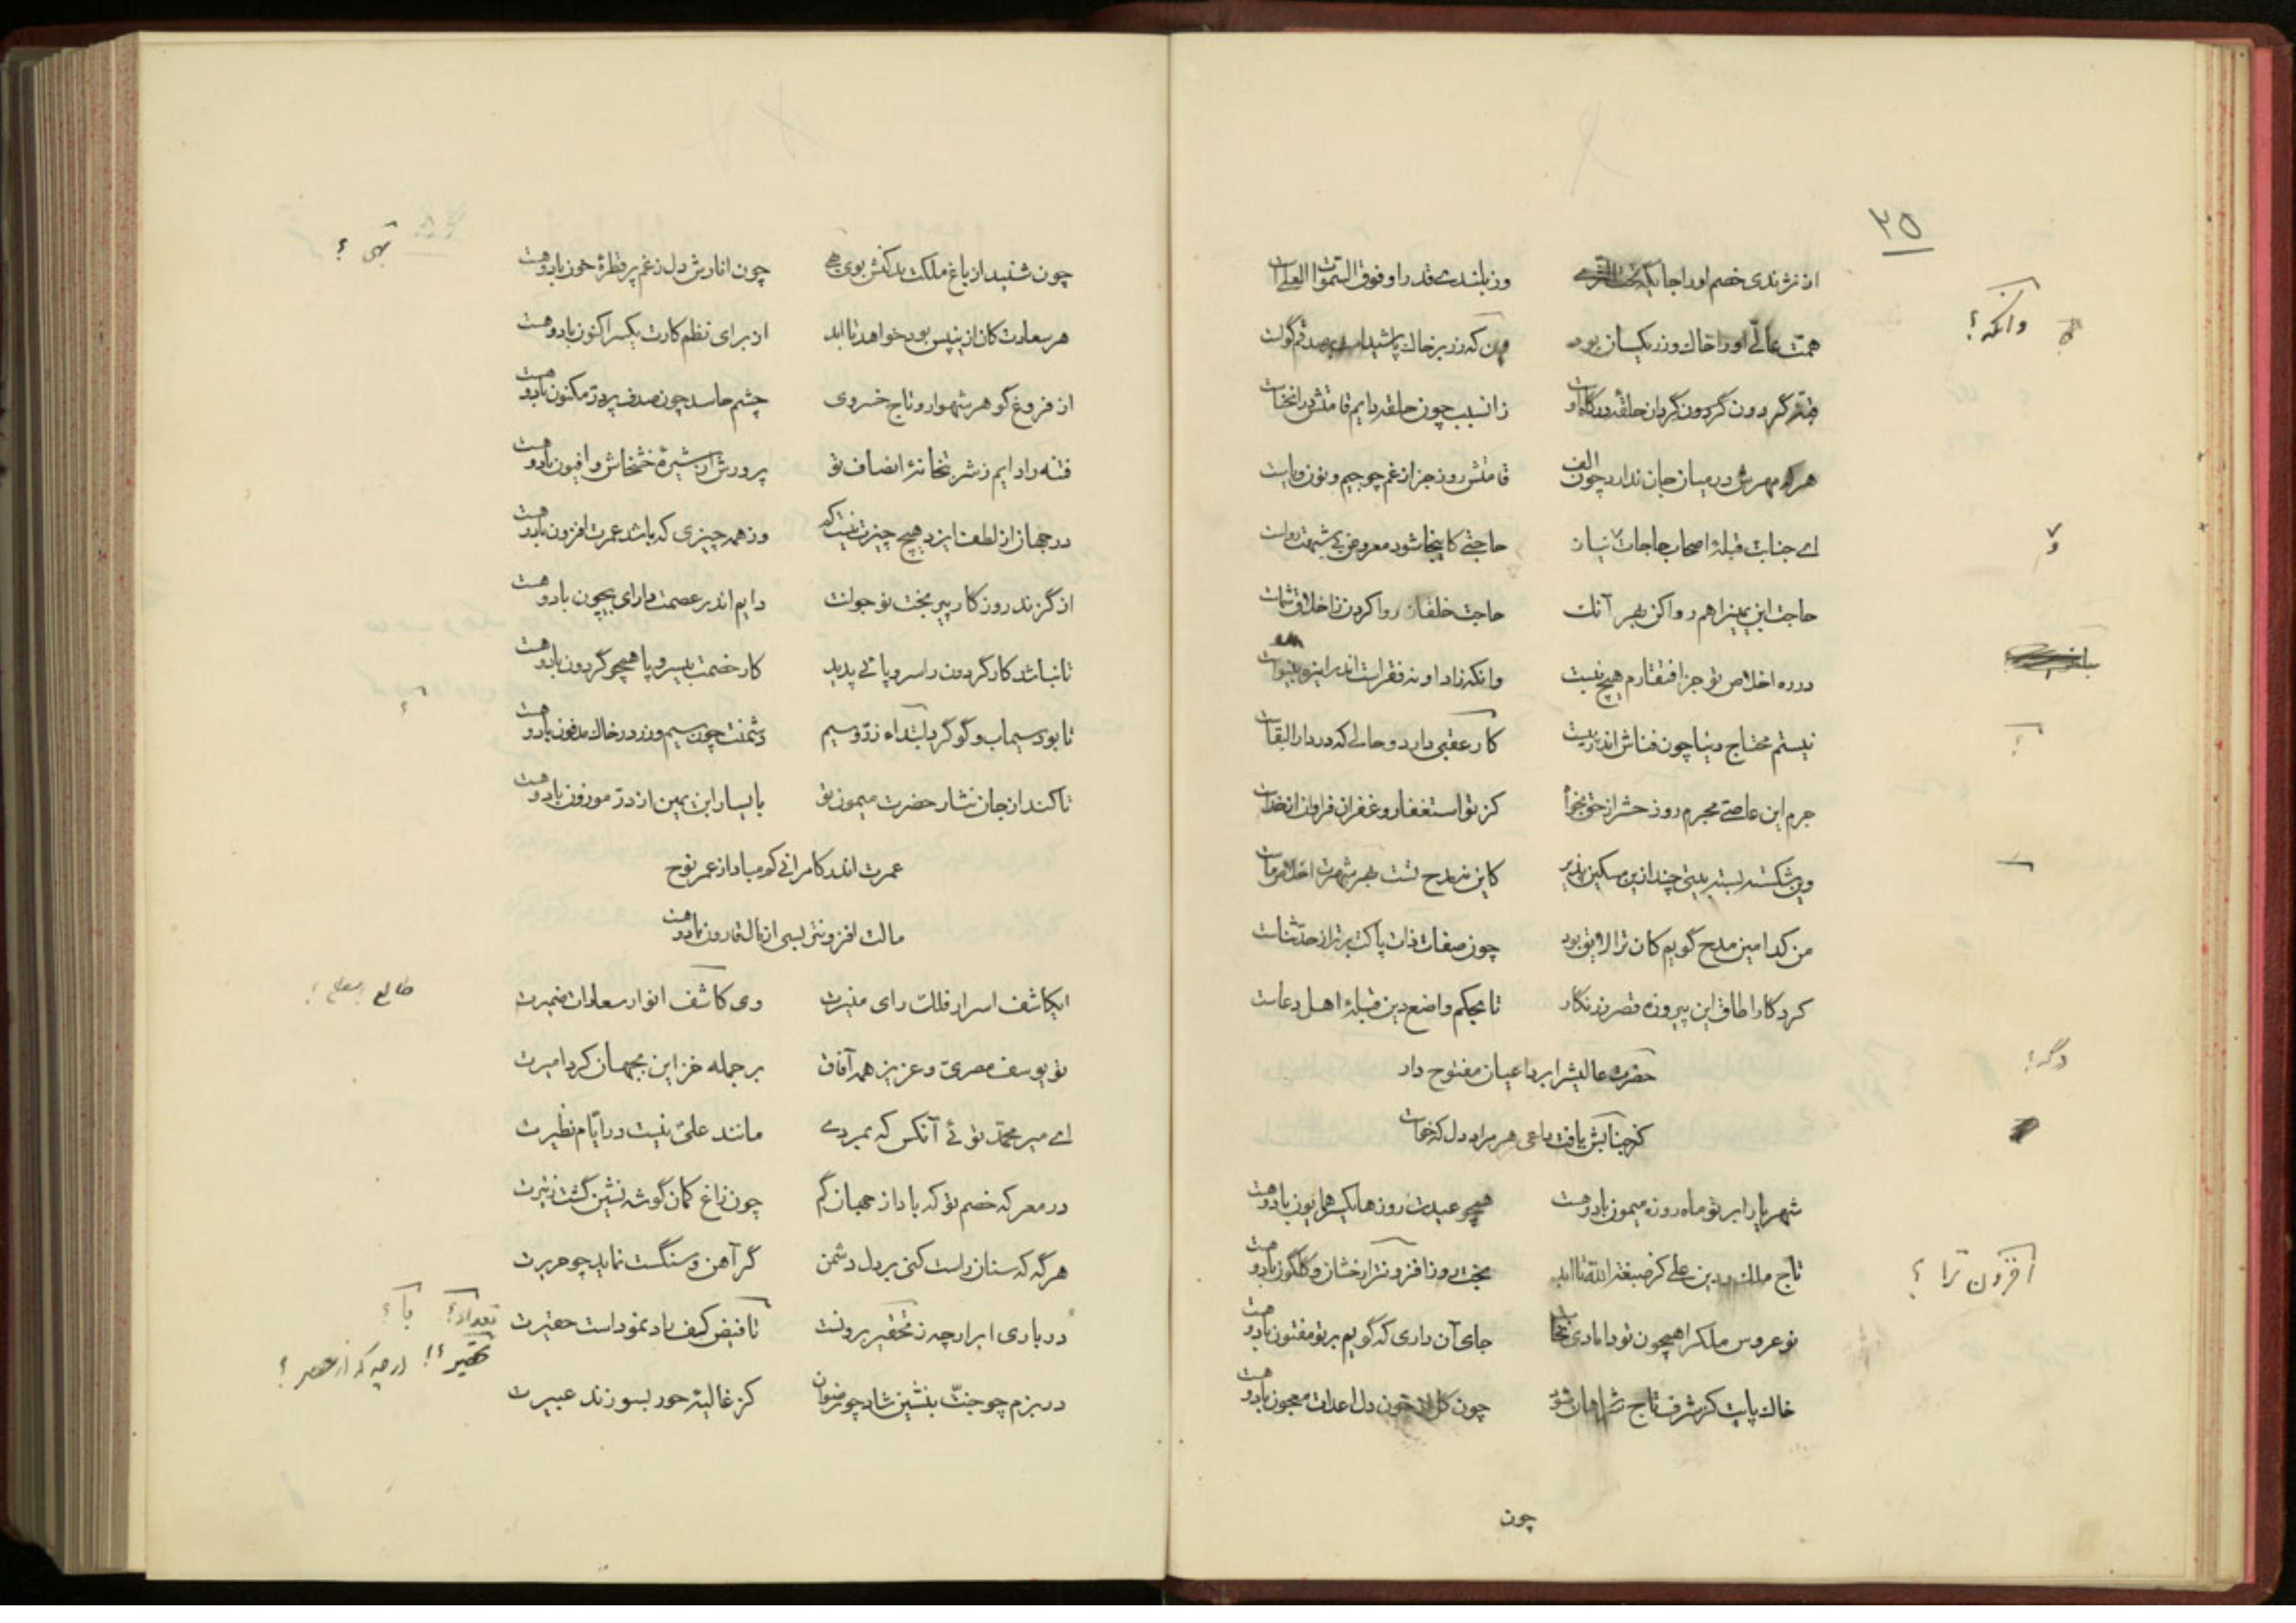 ۳۵
از نژندی خصم او را جایگه تحت الثری وز بلندی قدر او فوق السموات العلی است
همت عالی او را خاک و زر یکسان بود که زر بر خاک پاشیدن
گردون گردان حلقه درگاه او زانسبب چون حلقه دایم قامتش در انحناست
هرکه مهرش در میان جان ندارد چون الف قامتش روز جزا از غم چو جیم و نون و یاست
اے جناب قبلهٔ اصحاب حاجات حاجتی کاینجا شود معروض رواست
حاجت ابن یمین را هم روا کن بهر آنک حاجت خلقان روا کردن ز اخلاق شماست
در ره اخلاص تو جز افتقارم هیچ نیست وانکه زاد او نه فقرست اندر این ره بینواست
نیستم محتاج دنیا چون فناش اندر پیست کار عقبی دارد و حالی که در دار البقاست
جرم این عاصی مجرم روز حشر از حق بخواه کز تو استغفار و غفران فراوان از خداست
وین شکسته بسته بیتی چند ازین مسکین پذیر کاین نه مدح تست بهر شهرت اخلاص ماست
من کدامین مدح گویم کان ترا لایق بود چون صفات ذات پاکت برتر از حد ثناست
کردگارا طاق این پیروزه قصر زرنگار تا بحکم واضع دین قبلهٔ اهل دعاست
حضرت عالیش را بر داعیان مفتوح دار
کز جنابش یافت داعی هر مراد دل که خواست
شهریارا بر تو ماه روزه میمون باد و هست همچو عیدت روزها یکسر همایون باد و هست
تاج ملک و دین علی کز صبغة الله تا ابد بخت روز افزونتر از خشان و گلگون باد و هست
نو عروس ملک را همچون تو دامادی کجاست جای آن داری که گویم بر تو مفتون باد و هست
خاک پایت کز شرف تاج سر شاهان شود چون گل از خون دل اعدات معجون باد و هست
چون
وانکه ؟
و
؟
دگر ؟
افزون ترا ؟
چون شنید از باغ ملکت بد کنش بوی بهی چون انارش دل ز غم پر قطرهٔ خون باد و هست
هر سعادت کان ازین پس بود خواهد تا ابد از برای نظم کارت یکسر اکنون باد و هست
از فروغ گوهر شهوار و تاج خسروی چشم حاسد چون صدف پر در مکنون باد و هست
فتنه را دایم ز شربتخانهٔ انصاف تو پرورش از شیرهٔ خشخاش و افیون باد و هست
در جهان از لطف ایزد هیچ چیزت نیست کم وز همه چیزی که باشد عمرت افزون باد و هست
از گزند روزگار پیر بخت نوجوانت دایم اندر عصمت دارای بیچون باد و هست
تا نباشد کار گردون را سر و پائی پدید کار خصمت بیسر و پا همچو گردون باد و هست
تا بود سیماب و گوگرد ابتداء زر و سیم دشمنت چون سیم و زر در خاک مدفون باد و هست
تا کند از جان نثار حضرت میمون تو با یسار ابن یمین از در موزون باد و هست
عمرت اندر کامرانی کم مباد از عمر نوح
مالت افزونتر بسی از مال قارون باد و هست
ایکاشف اسرار فلک رای منیرت وی کاشف انوار سعادات ضمیرت
تو یوسف مصری و عزیز همه آفاق بر جمله خزاین بجهان کرد امیرت
اے میر محمد توئی آنکس که بمردی مانند علی نیست در ایام نظیرت
در معرکه خصم تو که باد از جهان گم چون زاغ کمان گوشه نشین گشت ز تیرت
هرگه که سنان راست کنی بر دل دشمن گر آهن و سنگست نماید چو حریرت
در باری ابر ارچه ز تحقیر برونست تا فیض کف راد نمودست حقیرت
در بزم چو جنت بنشین شاد چو رضوان کز غالیهٔ حور بسوزند عبیرت
بهی ؟
؟
طالع
تعداد ؟ با ؟
ارچه که از حصر ؟